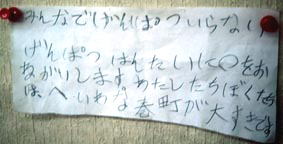 みんなでげんぱついらない
げんぱつはんたいに〇をお
ねがいします わたしたちぼくたち
は へいわな春町が大すきです